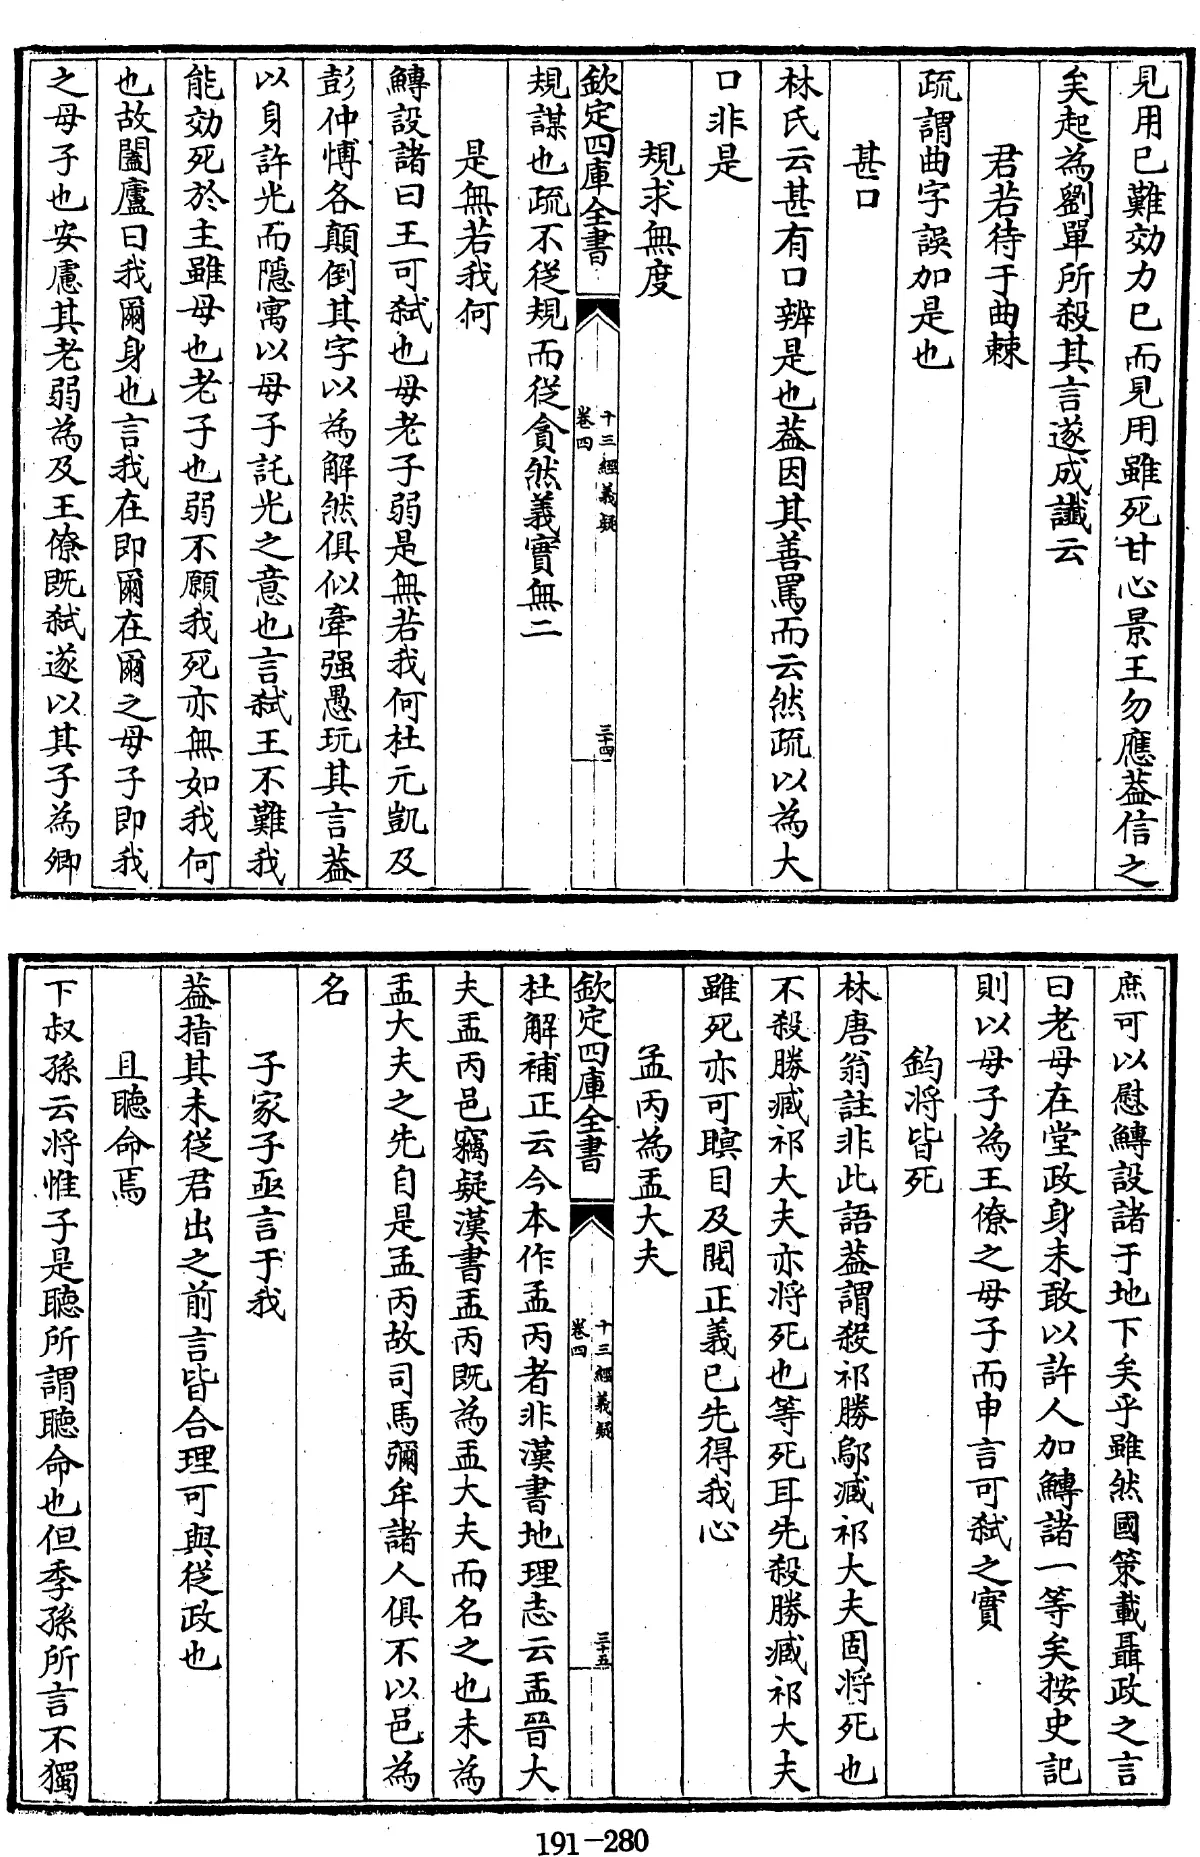 見用已難効力已而見用雖死甘心景王勿應葢信之
矣起為劉單所殺其言遂成讖云
君若待于曲棘
疏謂曲字誤加是也
甚口
林氏云甚有口辨是也葢因其善罵而云然疏以為大
口非是
規求無度
欽定四庫全書
十三經義疑
卷四
三十四
規謀也疏不從規而從貪然義實無二
是無若我何
鱄設諸曰王可弒也母老子弱是無若我何杜元凱及
彭仲愽各顛倒其字以為解然俱似牽强愚玩其言葢
以身許光而隱寓以母子託光之意也言弒王不難我
能効死於主雖母也老子也弱不願我死亦無如我何
也故闔廬曰我爾身也言我在即爾在爾之母子即我
之母子也安慮其老弱為及王僚既弒遂以其子為卿
庶可以慰鱄設諸于地下矣乎雖然國策載聶政之言
曰老母在堂政身未敢以許人加鱄諸一等矣按史記
則以母子為王僚之母子而申言可弒之實
鈞將皆死
林唐翁註非此語葢謂殺祁勝鄔臧祁大夫固將死也
不殺勝臧祁大夫亦將死也等死耳先殺勝臧祁大夫
雖死亦可瞑目及閱正義已先得我心
孟丙為盂大夫
欽定四庫全書
十三經義疑
卷四
三十五
杜解補正云今本作盂丙者非漢書地理志云盂晉大
夫盂丙邑竊疑漢書盂丙既為盂大夫而名之也未為
盂大夫之先自是孟丙故司馬彌牟諸人俱不以邑為
名
子家子亟言于我
葢指其未從君出之前言皆合理可與從政也
且聽命焉
下叔孫云將惟子是聽所謂聽命也但季孫所言不獨
191-280